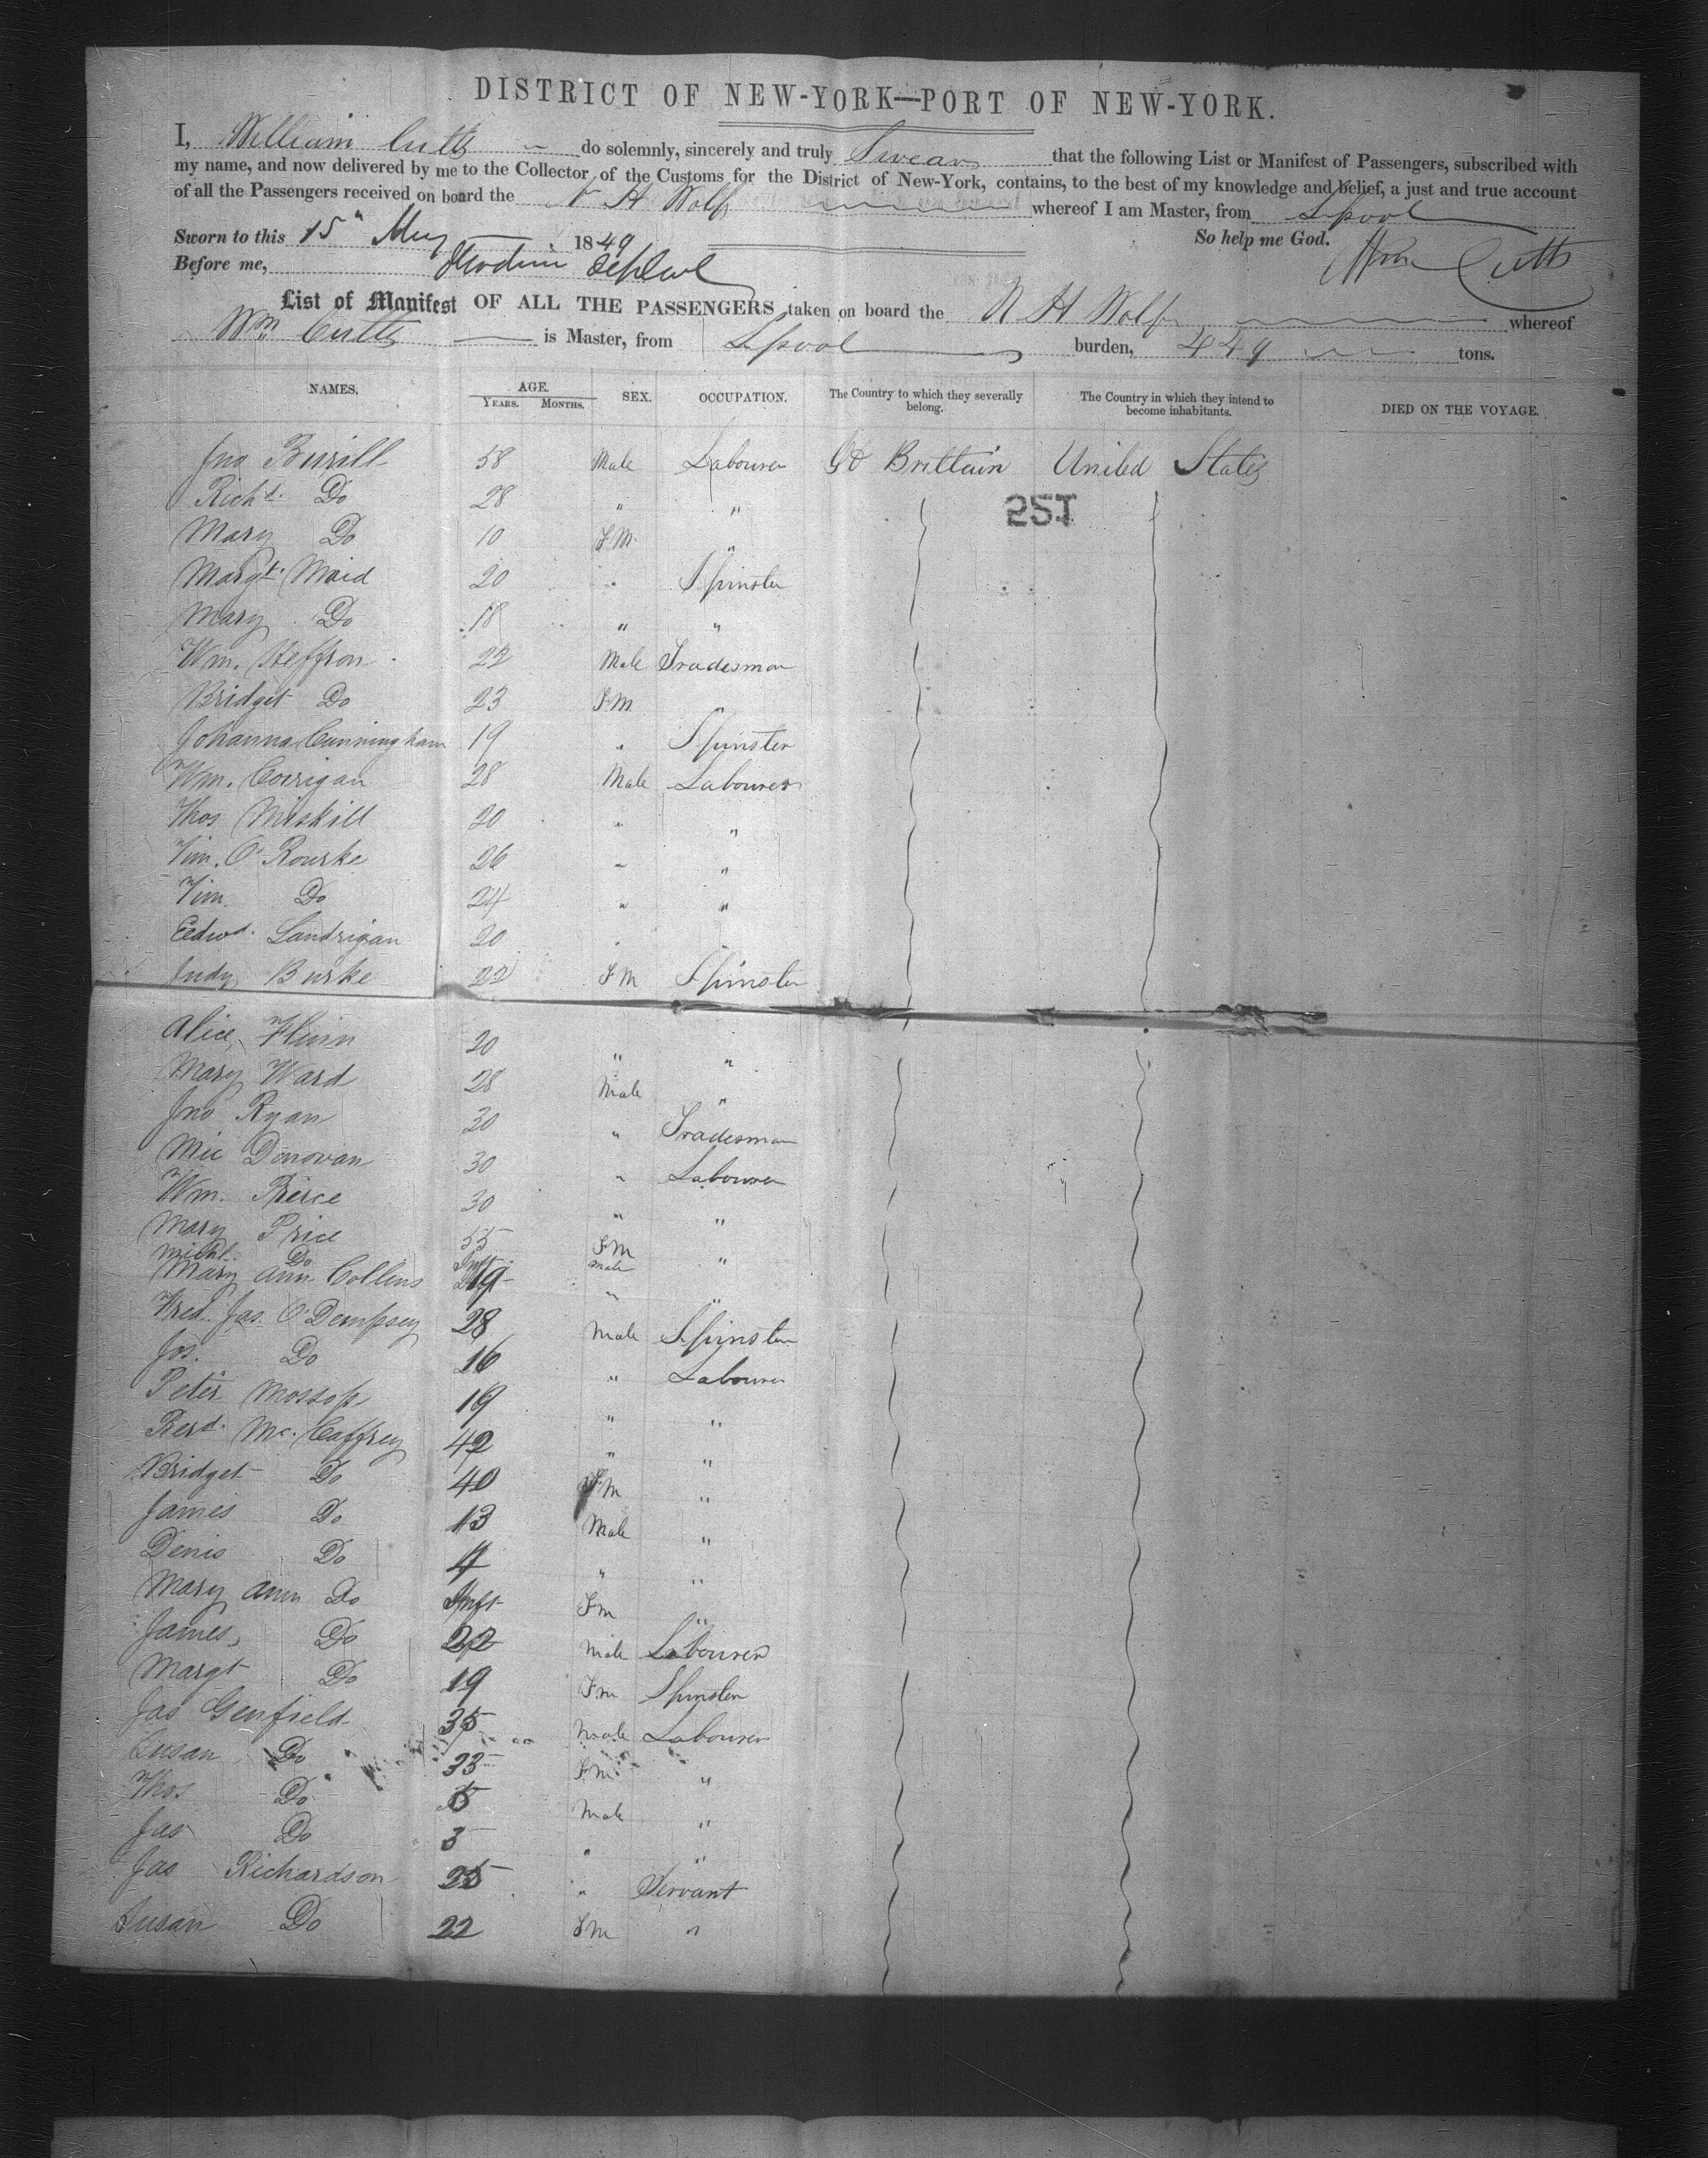 DISTRICT OF NEW-YORK—PORT OF NEW-YORK.
I, William Cutts do solemnly, sincerely and truly Swear that the following List or Manifest of Passengers, subscribed with
my name, and now delivered by me to the Collector of the Customs for the District of New-York, contains, to the best of my knowledge and belief, a just and true account
of all the Passengers received on board the N H Wolfe whereof I am Master, from Lpool
Sworn to this 15" May 1849 So help me God. Wm Cutts
Before me,
List of Manifest OF ALL THE PASSENGERS taken on board the N H Wolfe whereof
Wm Cutts is Master, from Lpool burden, 449 tons.
NAMES. AGE. YEARS. MONTHS. SEX. OCCUPATION. The Country to which they severally belong. The Country in which they intend to become inhabitants. DIED ON THE VOYAGE.
Jno Burrill 58 Male Labourer Gt Brittain United States
Richd. Do 28 " "
Mary Do 10 F.M. "
Margt. Maid 20 " Spinster
Mary Do 18 " "
Wm. Heffron 22 Male Tradesman
Bridget Do 23 F.M
Johanna Cunningham 19 " Spinster
Wm. Corrigan 28 Male Labourer
Thos Miskill 20 " "
Tim. O'Rourke 26 " "
Tim. Do 24 " "
Edwd. Landrigan 20 "
Judy Burke 22 F M Spinster
Alice Flinn 20 " "
Mary Ward 28 Male "
Jno Ryan 30 " Tradesman
Mic Donovan 30 " Labourer
Wm. Pierce 30 " "
Mary Price 55 F M "
Michl. Do Inft male
Mary Ann Collins 19 " "
Fred. Jas. O'Dempsey 28 Male Spinster
Jos. Do 16 " Labourer
Peter Mossop 19 " "
Berd. Mc. Caffrey 42 " "
Bridget Do 40 F M "
James Do 13 Male "
Denis Do 4 " "
Mary Ann Do Inft F M "
James Do 22 Male Labourer
Margt Do 19 F m Spinster
Jas Genfield 35 Male Labourer
Susan Do 33 F M "
Thos Do 5 Male "
Jas Do 3 " "
Jas Richardson 25 " Servant
Susan Do 22 F M "